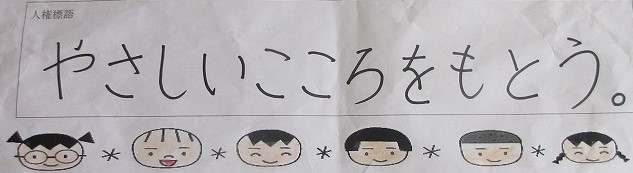 人権標語
やさしいこころをもとう。